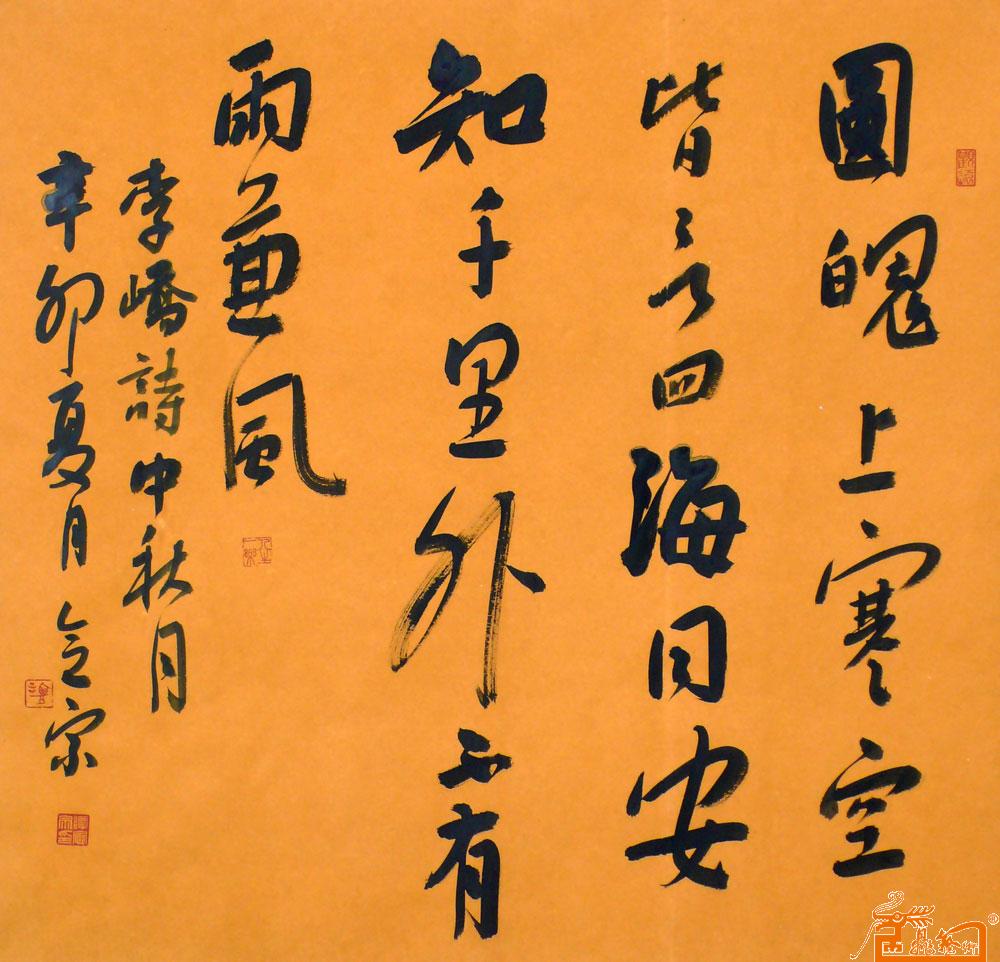 圓魄上寒空
皆言四海同安
知千里外不有
雨兼風
李嶠詩中秋月
辛卯夏月宗